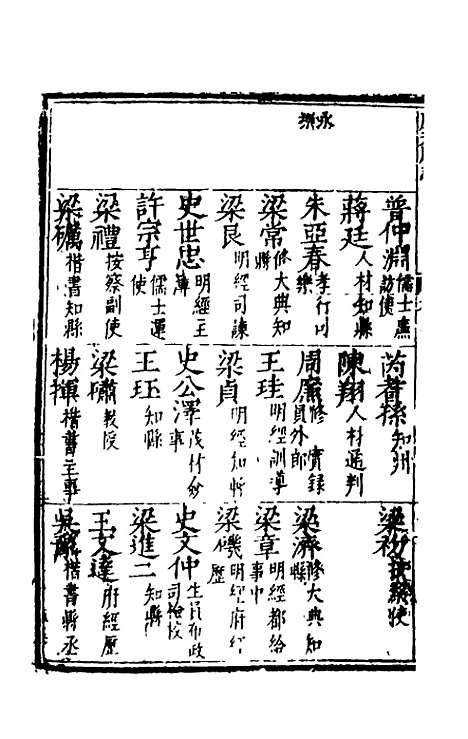 永樂
普仲淵 儒士廉訪使
蔣廷 人材知縣
朱亞春 孝行
梁常 修大典知縣
梁良 明經司諫
史世忠 明經主簿
許宗亨 儒士運使
梁禮 按察副使
梁礪 楷書知縣
芮孫 知州
陳翔 人材通判
周 修實錄員外郎
王珪 明經訓導
梁貞 明經知
史公澤
王珏 知縣
梁 教授
楊揮 楷書主事
梁 按察使
梁濟 修大典知縣
梁章 明經都給事中
梁磯 明經府經歷
史文仲 生員布政司
梁進二 知縣
王文達 府經歷
吳 楷書縣丞